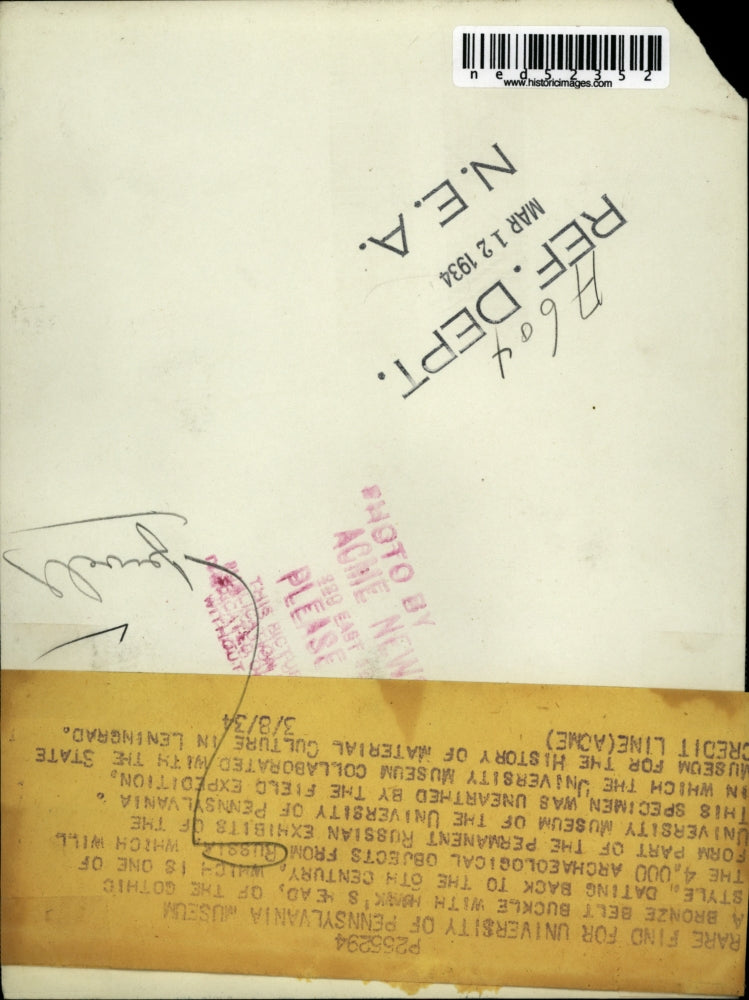 ned52352
www.historicimages.com
N.E.A.
MAR 12 1934
REF. DEPT.
A604
Jewels
PHOTO BY
ACME NEW
EAST
PLEASE
THIS PICTU
WITHOUT
P255294
RARE FIND FOR UNIVERSITY OF PENNSYLVANIA MUSEUM
A BRONZE BELT BUCKLE WITH HAWK'S HEAD, OF THE GOTHIC
STYLE, DATING BACK TO THE 6TH CENTURY, WHICH IS ONE OF
THE 4,000 ARCHAEOLOGICAL OBJECTS FROM RUSSIA, WHICH WILL
FORM PART OF THE PERMANENT RUSSIAN EXHIBITS OF THE
UNIVERSITY MUSEUM OF THE UNIVERSITY OF PENNSYLVANIA.
THIS SPECIMEN WAS UNEARTHED BY THE FIELD EXPEDITION,
IN WHICH THE UNIVERSITY MUSEUM COLLABORATED WITH THE STATE
MUSEUM FOR THE HISTORY OF MATERIAL CULTURE IN LENINGRAD.
CREDIT LINE(ACME) 3/8/34